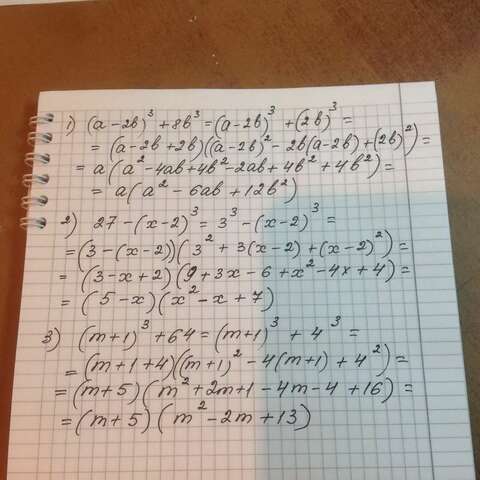 1) (a-2b)³+8b³=(a-2b)³+(2b)³=
=(a-2b+2b)((a-2b)²-2b(a-2b)+(2b)²)=
=a(a²-4ab+4b²-2ab+4b²+4b²)=
=a(a²-6ab+12b²)
2) 27-(x-2)³=3³-(x-2)³=
=(3-(x-2))(3²+3(x-2)+(x-2)²)=
=(3-x+2)(9+3x-6+x²-4x+4)=
=(5-x)(x²-x+7)
3) (m+1)³+64=(m+1)³+4³=
=(m+1+4)((m+1)²-4(m+1)+4²)=
=(m+5)(m²+2m+1-4m-4+16)=
=(m+5)(m²-2m+13)